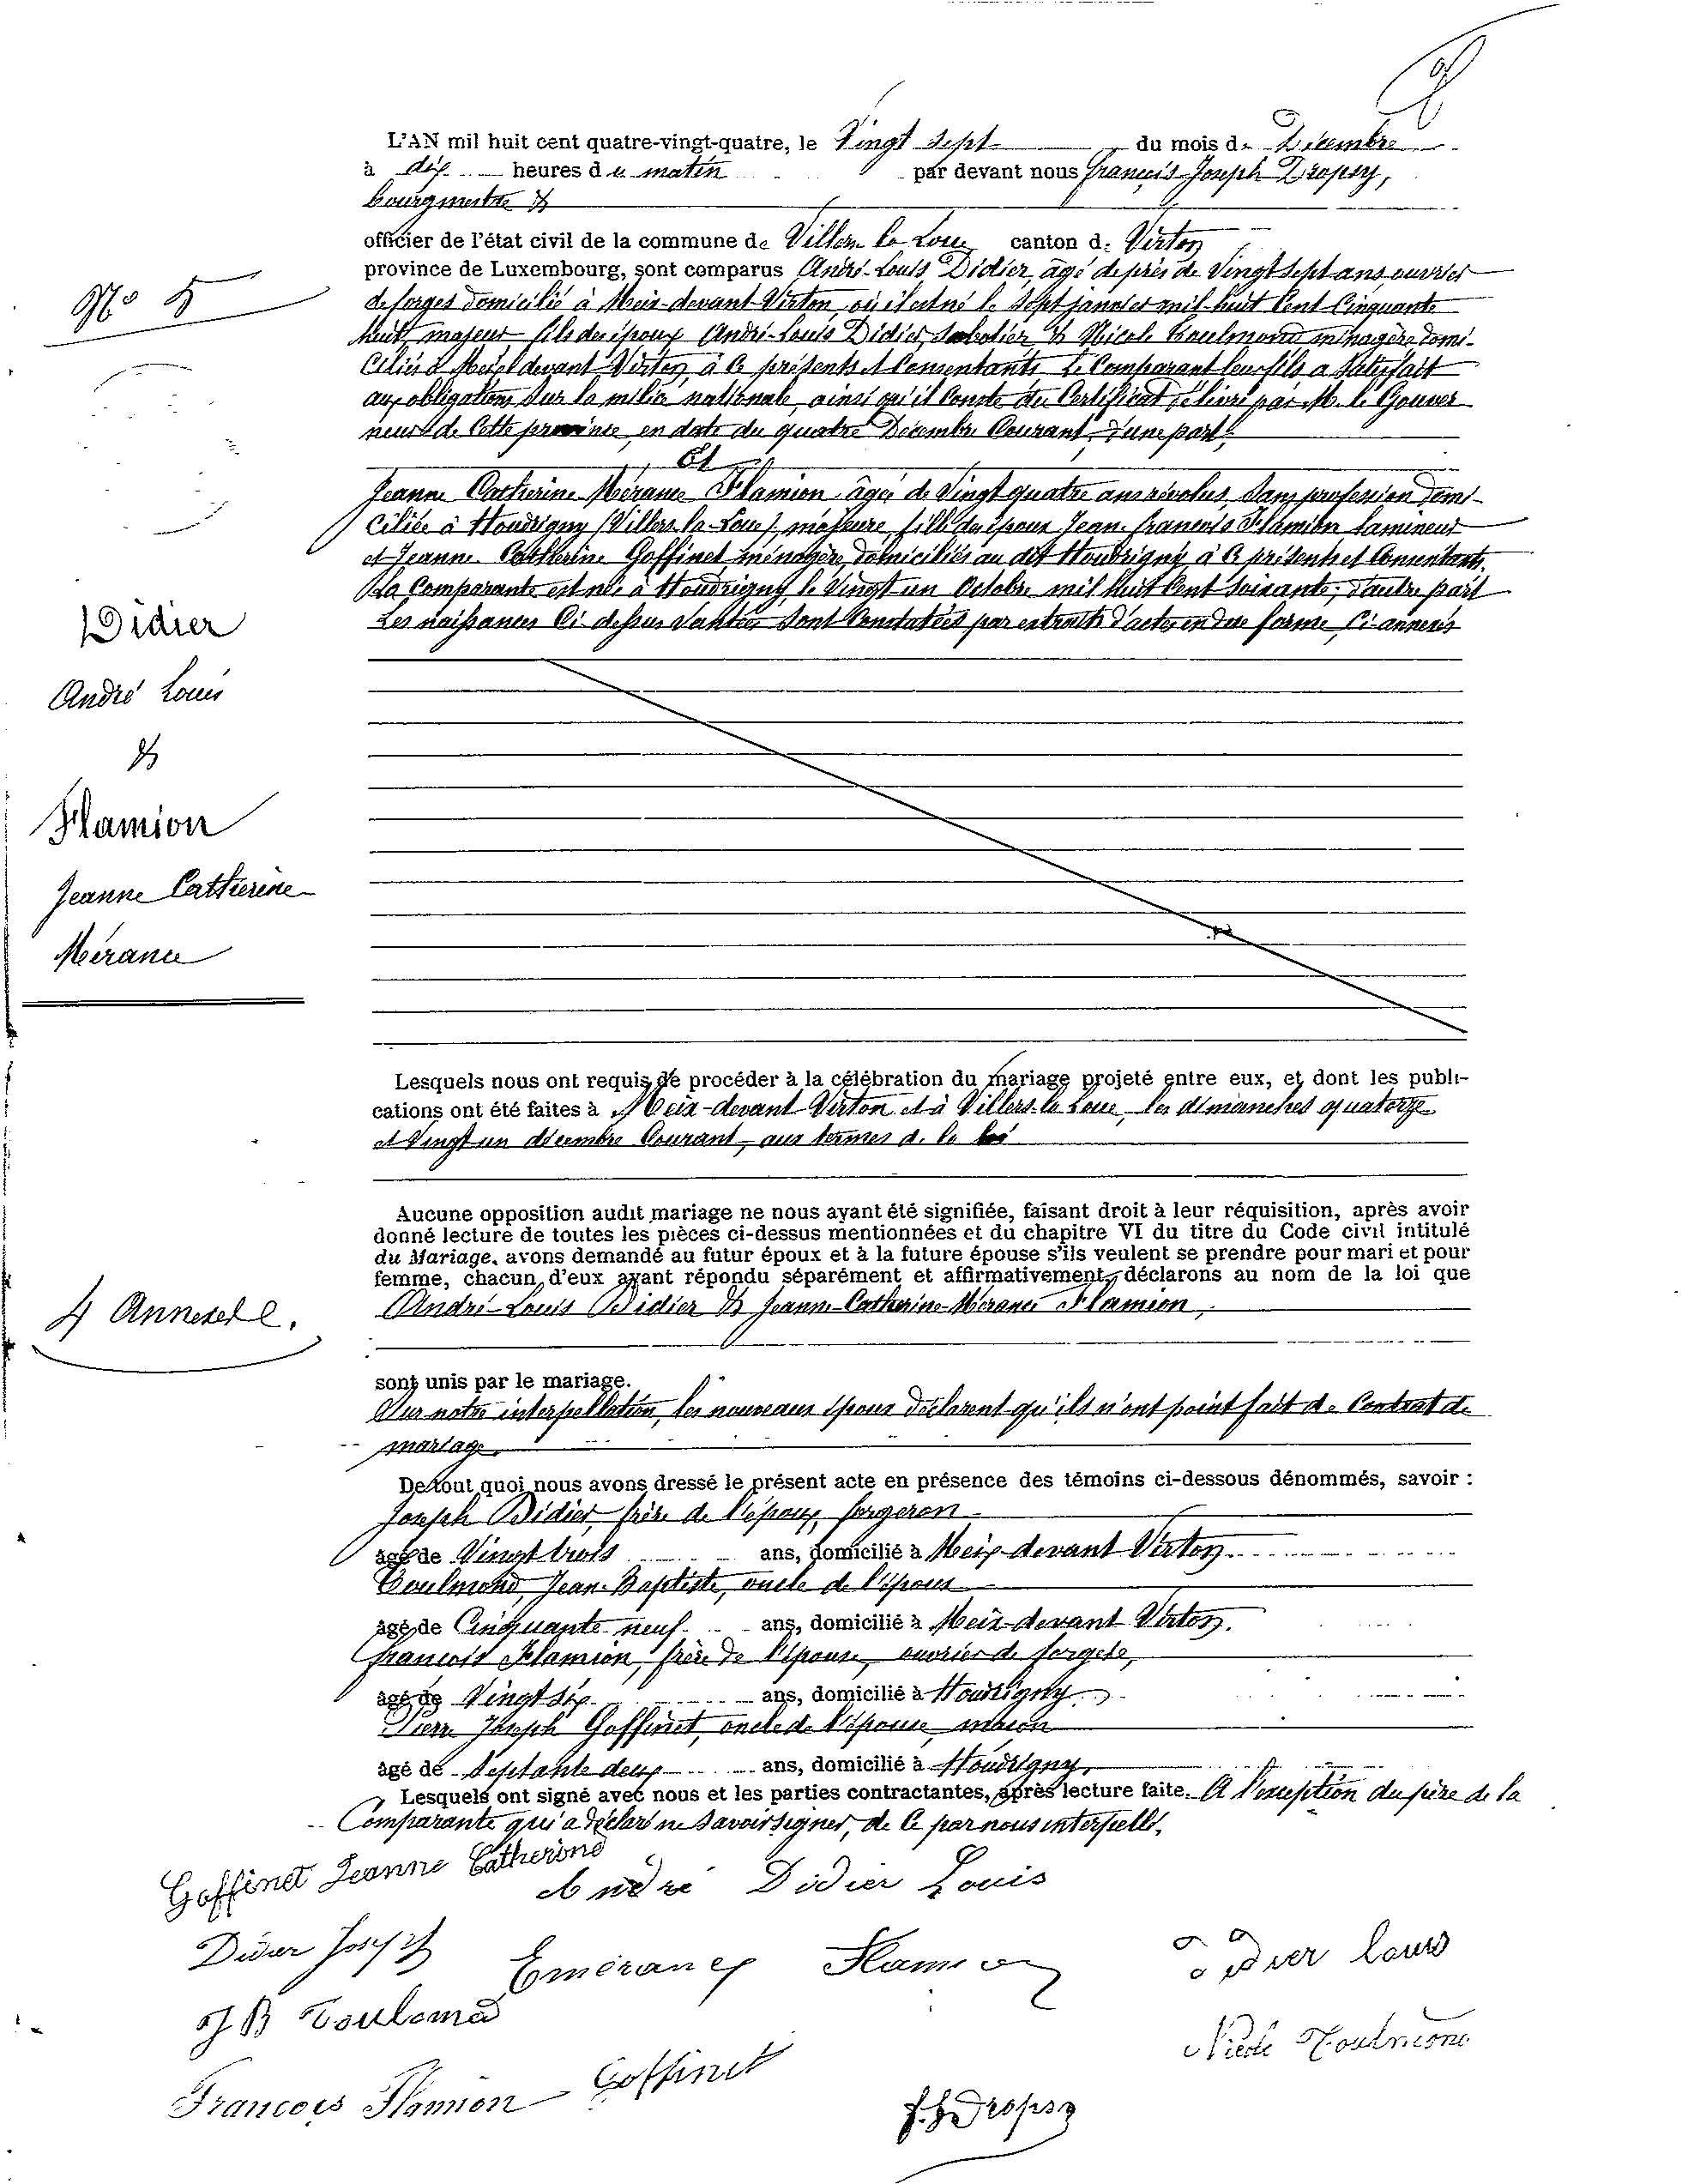 L'AN mil huit cent quatre-vingt-quatre, le Vingt sept du mois de Décembre
à dix heures du matin par devant nous François Joseph Dropsy,
bourgmestre &
officier de l'état civil de la commune de Villers la Loue canton de Virton
province de Luxembourg, sont comparus André-Louis Didier, âgé de près de Vingt sept ans, ouvrier
N° 5
de forges domicilié à Meix-devant-Virton, où il est né le sept janvier mil huit cent Cinquante
huit, majeur fils des époux André-Louis Didier, Sabotier & Nicole Toulmond ménagère domi-
ciliés à Meix devant Virton, à ce présents et Consentants. Le Comparant leur fils a Satisfait
aux obligations Sur la milice nationale, ainsi qu'il Conste du Certificat délivré par M. le Gouver
neur de Cette province, en date du quatre Décembre Courant, d'une part;
Et
Jeanne Catherine Mérance Flamion, âgée de Vingt quatre ans révolus, Sans profession domi-
ciliée à Houdrigny (Villers-la-Loue), majeure, fille des époux Jean-françois Flamion lamineur
et Jeanne Catherine Goffinet ménagère domiciliés au dit Houdrigny, à ce présents et Consentants.
La Comparante est née à Houdrigny, le Vingt un Octobre mil huit Cent Soixante, d'autre part
Les naissances Ci-dessus Vantées Sont Constatées par extraits d'actes en due forme, Ci-annexés
Didier
André Louis
&
Flamion
Jeanne Catherine
Mérance
Lesquels nous ont requis de procéder à la célébration du mariage projeté entre eux, et dont les publi-
cations ont été faites à Meix-devant Virton et à Villers-la-Loue, les dimanches quatorze
et Vingt un décembre Courant, aux termes de la loi
Aucune opposition audit mariage ne nous ayant été signifiée, faisant droit à leur réquisition, après avoir
donné lecture de toutes les pièces ci-dessus mentionnées et du chapitre VI du titre du Code civil intitulé
du Mariage, avons demandé au futur époux et à la future épouse s'ils veulent se prendre pour mari et pour
femme, chacun d'eux ayant répondu séparément et affirmativement, déclarons au nom de la loi que
4 Annexes
André-Louis Didier & Jeanne-Catherine-Mérance Flamion,
sont unis par le mariage.
Sur notre interpellation, les nouveaux époux déclarent qu'ils n'ont point fait de Contrat de
mariage.
De tout quoi nous avons dressé le présent acte en présence des témoins ci-dessous dénommés, savoir :
Joseph Didier, frère de l'époux, forgeron
âgé de Vingt trois ans, domicilié à Meix-devant Virton
Toulmond, Jean-Baptiste, oncle de l'époux
âgé de Cinquante neuf ans, domicilié à Meix-devant Virton.
françois Flamion, frère de l'épouse, ouvrier de forges,
âgé de Vingt six ans, domicilié à Houdrigny
Pierre Joseph Goffinet, oncle de l'épouse, maçon
âgé de Septante deux ans, domicilié à Houdrigny,
Lesquels ont signé avec nous et les parties contractantes, après lecture faite. A l'exception du père de la
Comparante qui a déclaré ne Savoir Signer, de Ce par nous interpellé.
Goffinet Jeanne Catherine
André Didier Louis
Didier Joseph
Emérance Flamion
Didier Louis
JB Toulomd
Nicole Toulmond
François Flamion
Goffinet
f. J. Dropsy